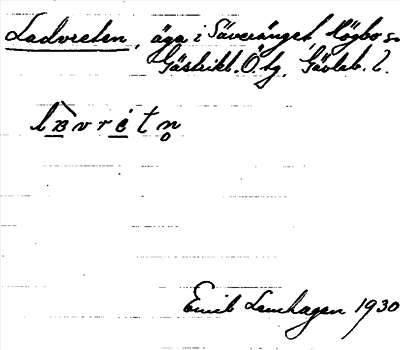 Ladvreten, äga i Säverängel Högbo sn
Gästrikl. Ö tg. Gävleb. l.
lavretn
Emil Lenhagen 1930